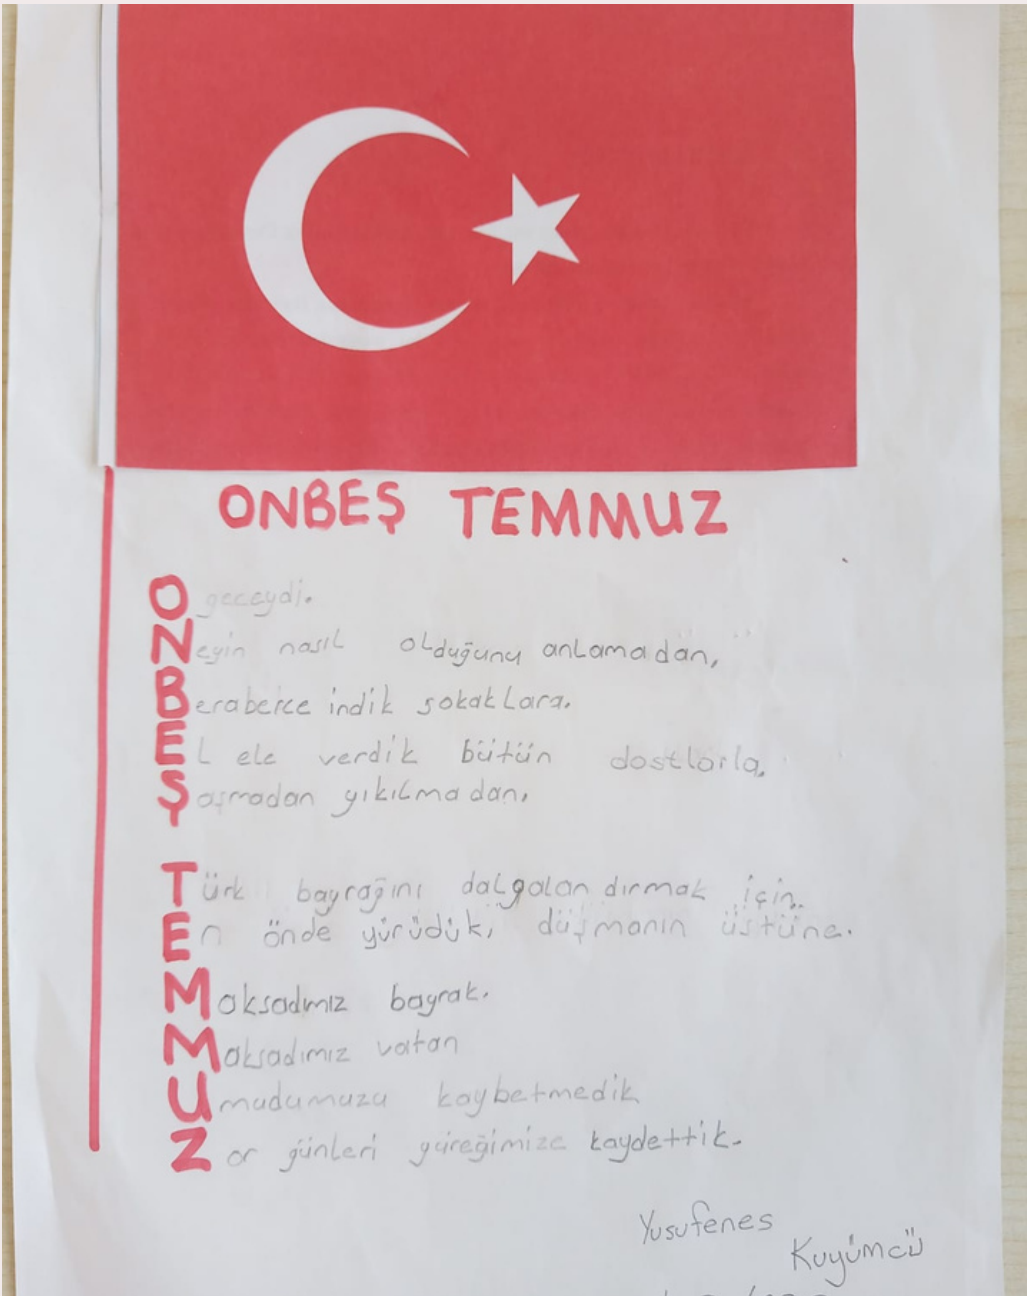 ONBEŞ TEMMUZ
O geceydi.
Neyin nasıl olduğunu anlamadan,
Beraberce indik sokaklara.
El ele verdik bütün dostlarla,
Şaşmadan yıkılmadan,
Türk bayrağını dalgalandırmak için.
En önde yürüdük, düşmanın üstüne.
Maksadımız bayrak.
Maksadımız vatan
Umudumuzu kaybetmedik
Zor günleri yüreğimize kaydettik.
Yusufenes
Kuyumcü